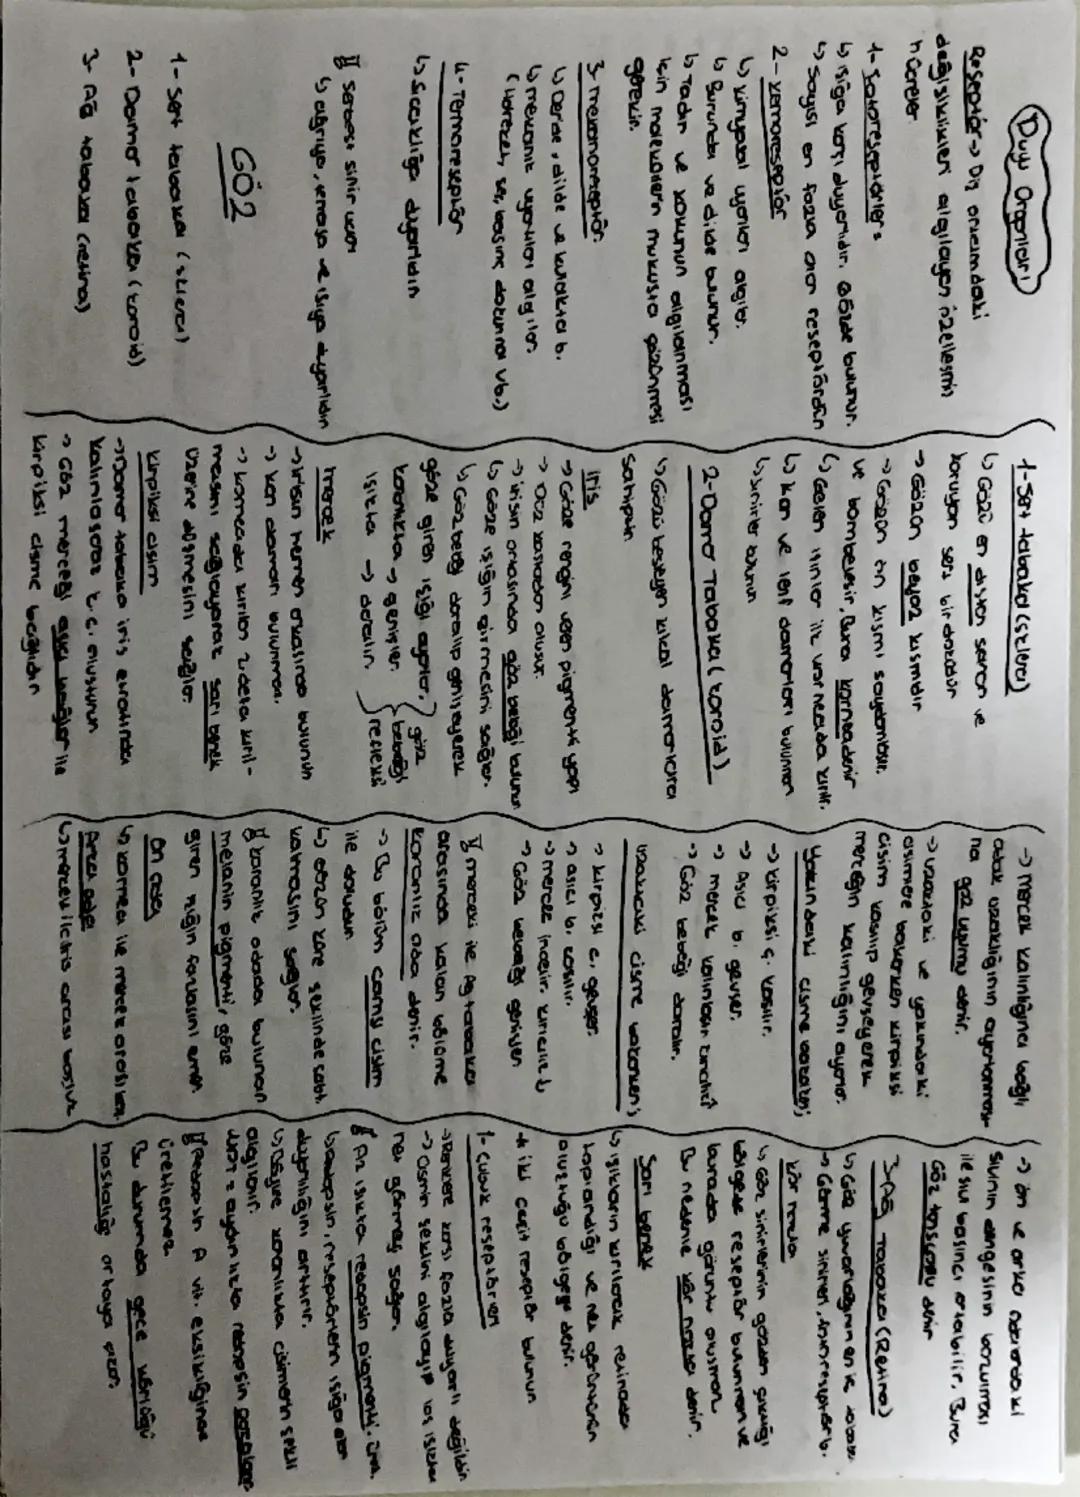 Duyu Organları
Reseptör → Dış ortamdaki
değişiklikleri algılayan özelleşmiş
hücreler
1- Fotoreseptörler:
↳ ışığa karşı duyarlıdır. Gözde bulunur.
↳ Sayısı en fazla olan reseptördür
2- kemoreseptör
↳ kimyasal uyarıları algılar.
↳ Burunda ve dilde bulunur.
↳ Tadın ve kokunun algılanması
için moleküllerin mukusta çözünmesi
gerekir.
3- mekanoreseptör
↳ Deride, dilde ve kulakta b.
↳ mekanik uyarıları algılar.
(Hareket, ses, basınç dokunma vb.)
4- Termoreseptör
↳ Sıcaklığa duyarlıdır
serbest sinir ucu
↳ ağrıya, temasa ve ısıya duyarlıdır
GÖZ
1- Sert tabaka (sklera)
2- Damar tabaka (koroid)
3- Ağ tabaka (retina)
1- Sert tabaka (sklera)
↳ Gözü en dıştan saran ve
koruyan sert bir dokudur
→ Gözün beyaz kısmıdır
→ Gözün ön kısmı saydamlaşır
ve bombeleşir. Bura korneadenir
↳ Gelen ışınlar ilk
↳ kan ve lenf damarları bulunmaz
↳ Sinirler bulunur
2- Damar Tabaka (koroid)
↳ Gözü besleyen kılcal damarlara
sahiptir
İris
→ Göze rengini veren pigmentli yapı
→ Düz kastan oluşur.
→ irisin ortasında göz bebeği bulunur
↳ Göze ışığın girmesini sağlar.
↳ Göz bebeği daralıp genişleyerek
göze giren ışığı ayarlar.
karanlıkta → genişler
ışıkta → daralır.
göz
bebeği
refleksi
mercek
→ irisin hemen arkasında bulunur
→ kan damarı bulunmaz.
→ korneada kırılan 2. defa kırıl-
masını sağlayarak sarı benek
üzerine düşmesini sağlar.
kirpiksi cisim
→ Damar tabaka iris etrafında
kalınlaşarak k.c. oluşturur
→ Göz merceği asıcı bağlar ile
kirpiksi cisme bağlıdır
→ mercek kalınlığına bağlı
odak uzaklığının ayarlanması-
na göz uyumu denir.
→ uzaktaki ve yakındaki
cisimlere bakarken kirpiksi
cisim kasılıp gevşeyerek
merceğin kalınlığını ayarlar.
Yakındaki cisme bakarken;
→ kirpiksi c. kasılır.
→ Asıcı b. gevşer.
→ mercek kalınlaşır
→ Göz bebeği daralır.
uzaktaki cisme bakarken;
→ kirpiksi c. gevşer
→ asıcı b. kasılır.
→ mercek incelir.
→ Göz bebeği genişler
mercek ile Ağ tabaka
arasında kalan bölüme
karanlık oda denir.
→ Bu bölüm camsı cisim
ile doludur.
↳ Gözün küre şeklinde sabit
kalmasını sağlar.
karanlık odada bulunan
melanin pigmenti, göze
giren ışığın fazlasını emer.
Ön oda
↳ kornea ile mercek arası
Arka oda
↳ mercek ile iris arası boşluk
→ ön ve arka odadaki
sıvının dengesinin bozulması
ile sıvı basıncı artabilir. Buna
Göz tansiyonu denir
3- Ağ Tabaka (Retina)
↳ Göz yuvarlağının en iç tabaka
→ Görme sinirleri, b.
kör nokta
↳ Göz sinirlerinin gözden çıktığı
bölgede reseptör bulunmaz ve
burada görüntü oluşmaz
Bu nedenle kör nokta denir.
Sarı benek
↳ ışıkların kırılarak retinada
toplandığı ve net görüntünün
oluştuğu bölgeye denir.
★ iki çeşit reseptör bulunur
1- Çubuk reseptörleri
→ Renklere karşı fazla duyarlı değildir
→ Cismin şeklini algılayıp
net görmeyi sağlar.
Az ışıkta rodopsin pigmenti
↳ Rodopsin, reseptörlerin ışığa olan
duyarlılığını arttırır.
↳ Böylece karanlıkta cisimlerin şekli
algılanır.
aydınlıkta rodopsin parçalanır
Rodopsin A vit. eksikliğinde
üretilemez
Bu durumda gece körlüğü
hastalığı ortaya çıkar.